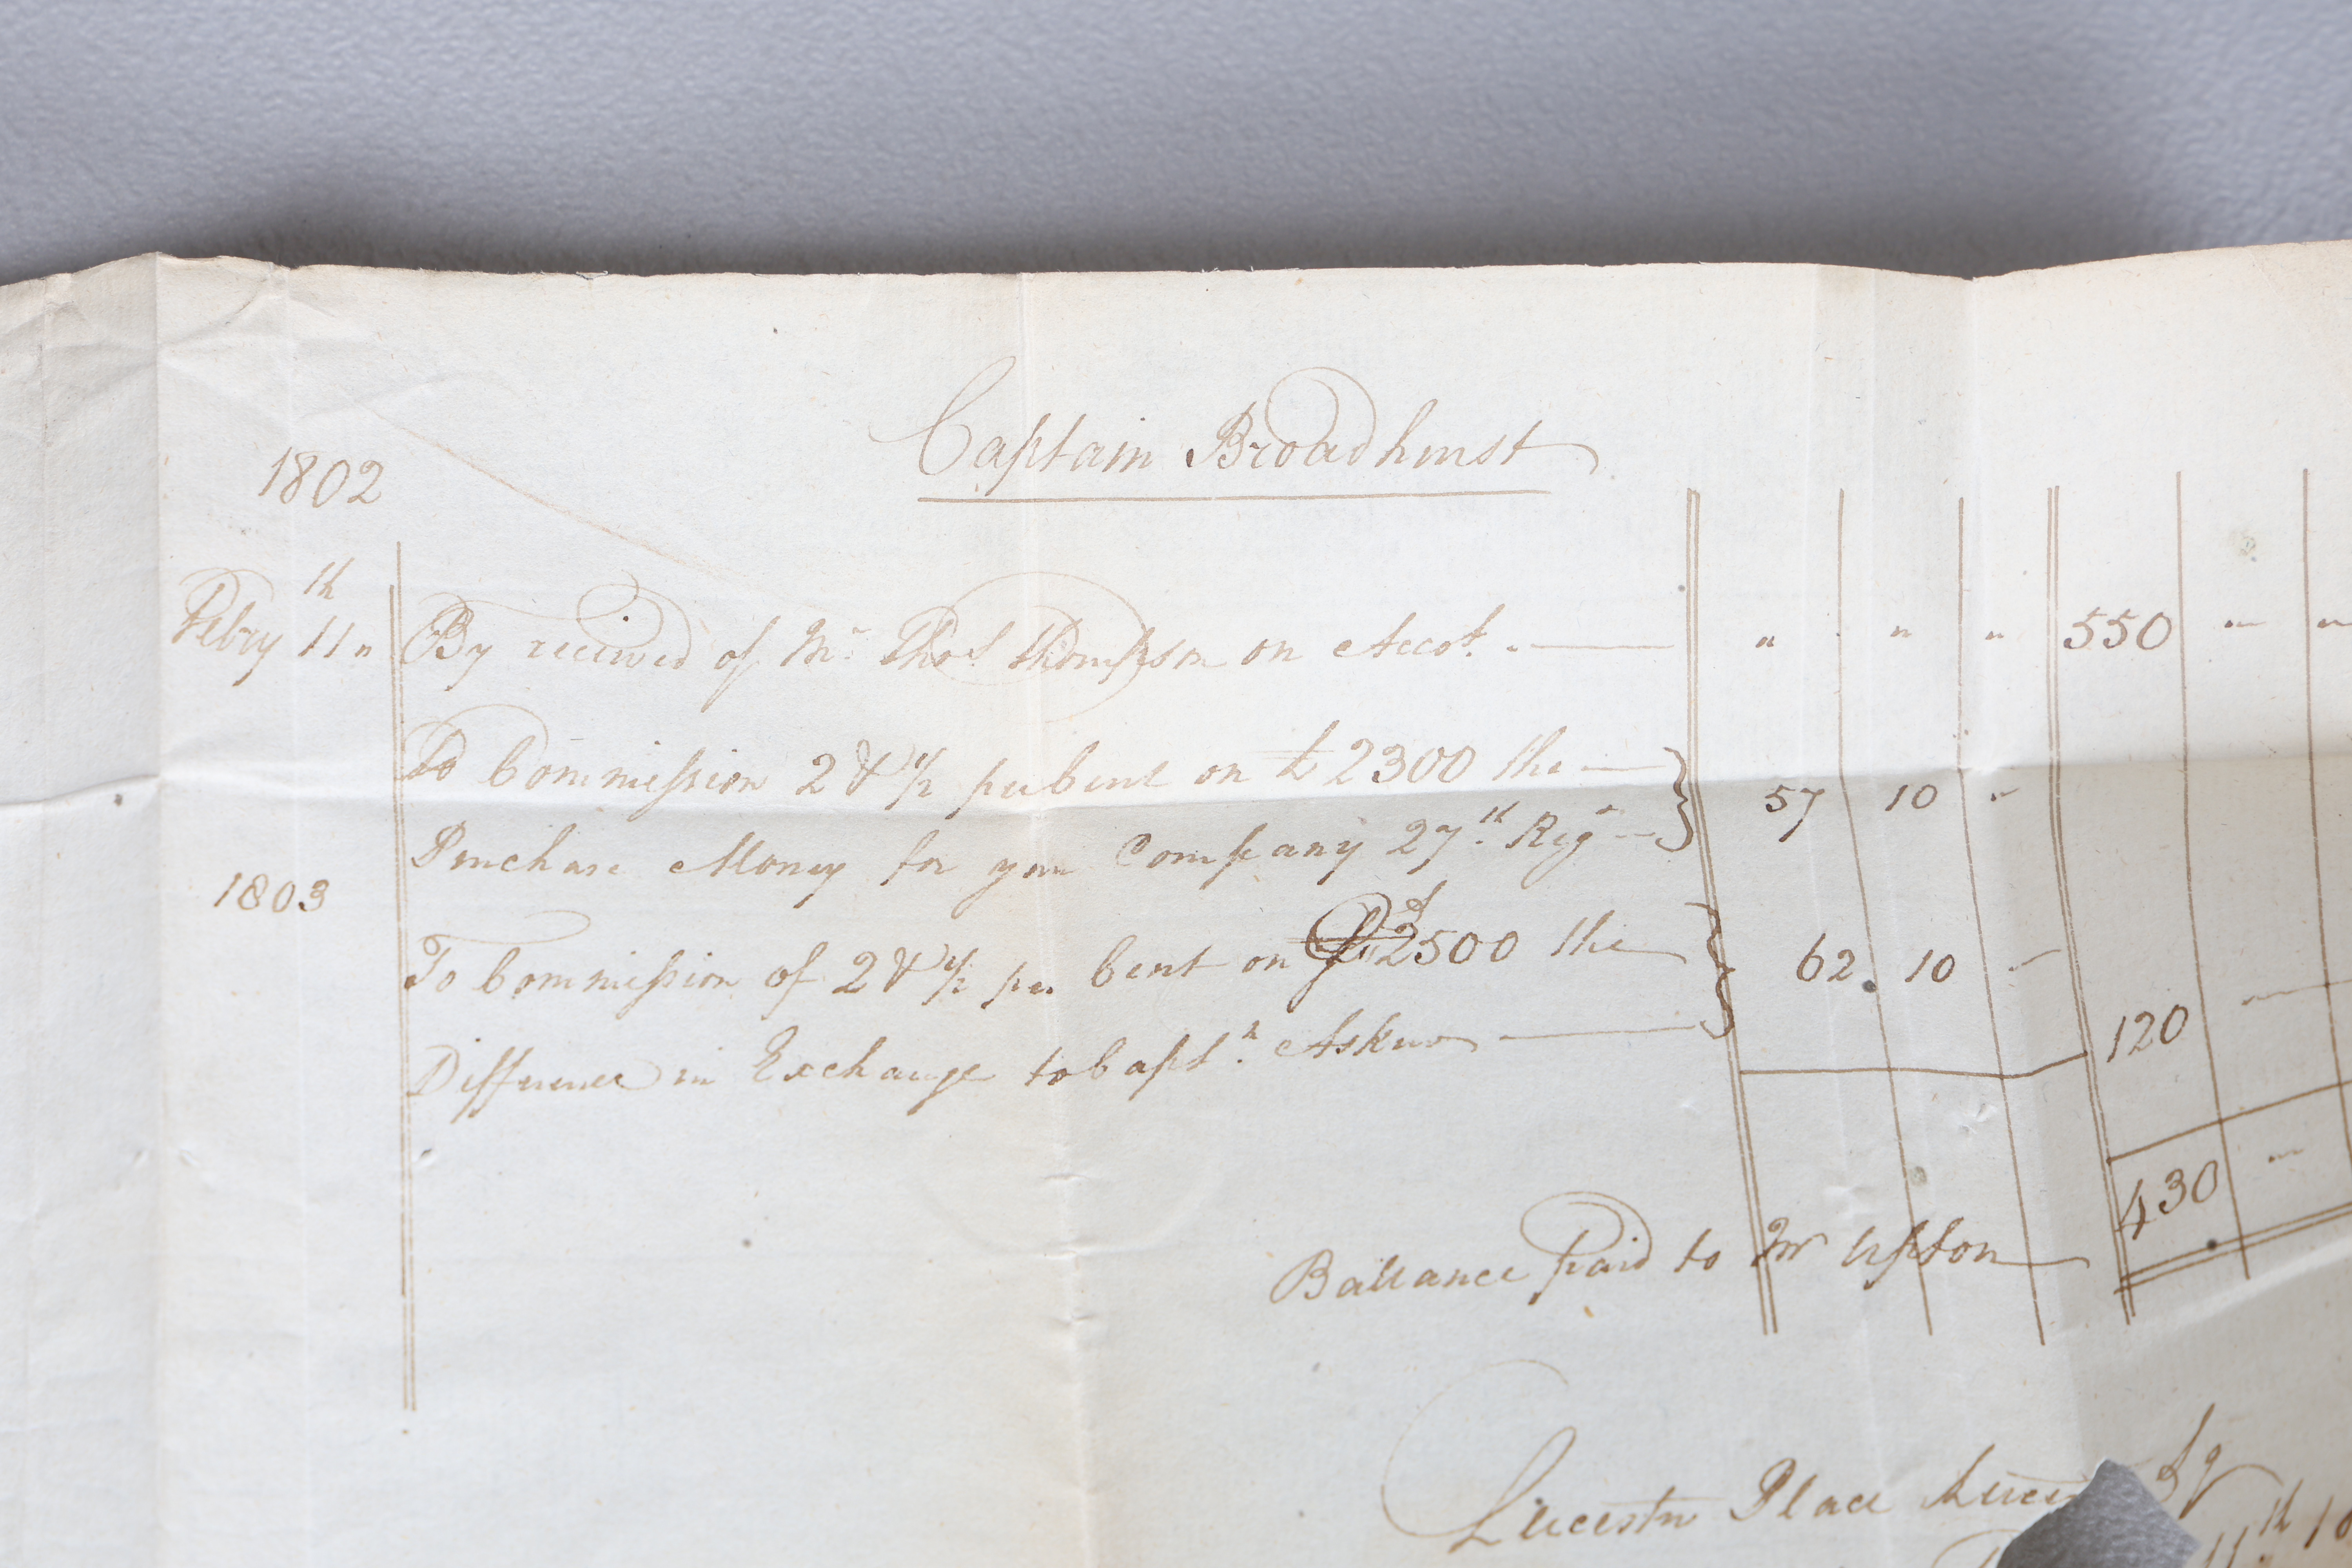 Captain Broadhurst
1802
Febry 11th " By received of Mr Thos Thompson on Accot. " " " 550 " "
To Commission 2 & ½ per Cent on £2300 the
Purchase Money for your Company 27th Regt 57 10 "
1803
To Commission of 2 & ½ per Cent on £2500 the
Difference in Exchange to Captn Askew 62 10 "
120
430 "
Ballance paid to Mr Upton
Leicester Place Leicester Sq
11th